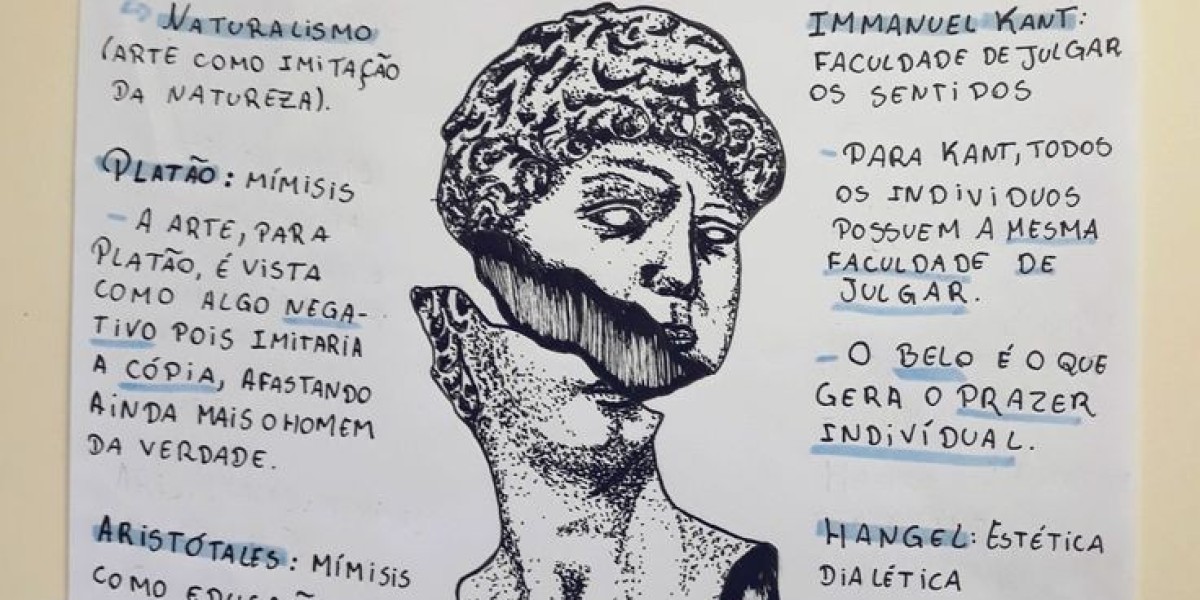 NATURALISMO
(ARTE COMO IMITAÇÃO
DA NATUREZA).
PLATÃO: MÍMISIS
- A ARTE, PARA
PLATÃO, É VISTA
COMO ALGO NEGA-
TIVO POIS IMITARIA
A CÓPIA, AFASTANDO
AINDA MAIS O HOMEM
DA VERDADE.
ARISTÓTALES: MÍMISIS
COMO
IMMANUEL KANT:
FACULDADE DE JULGAR
OS SENTIDOS
- PARA KANT, TODOS
OS INDIVIDUOS
POSSUEM A MESMA
FACULDADE DE
JULGAR.
- O BELO É O QUE
GERA O PRAZER
INDIVÍDUAL.
HANGEL: ESTÉTICA
DIALÉTICA